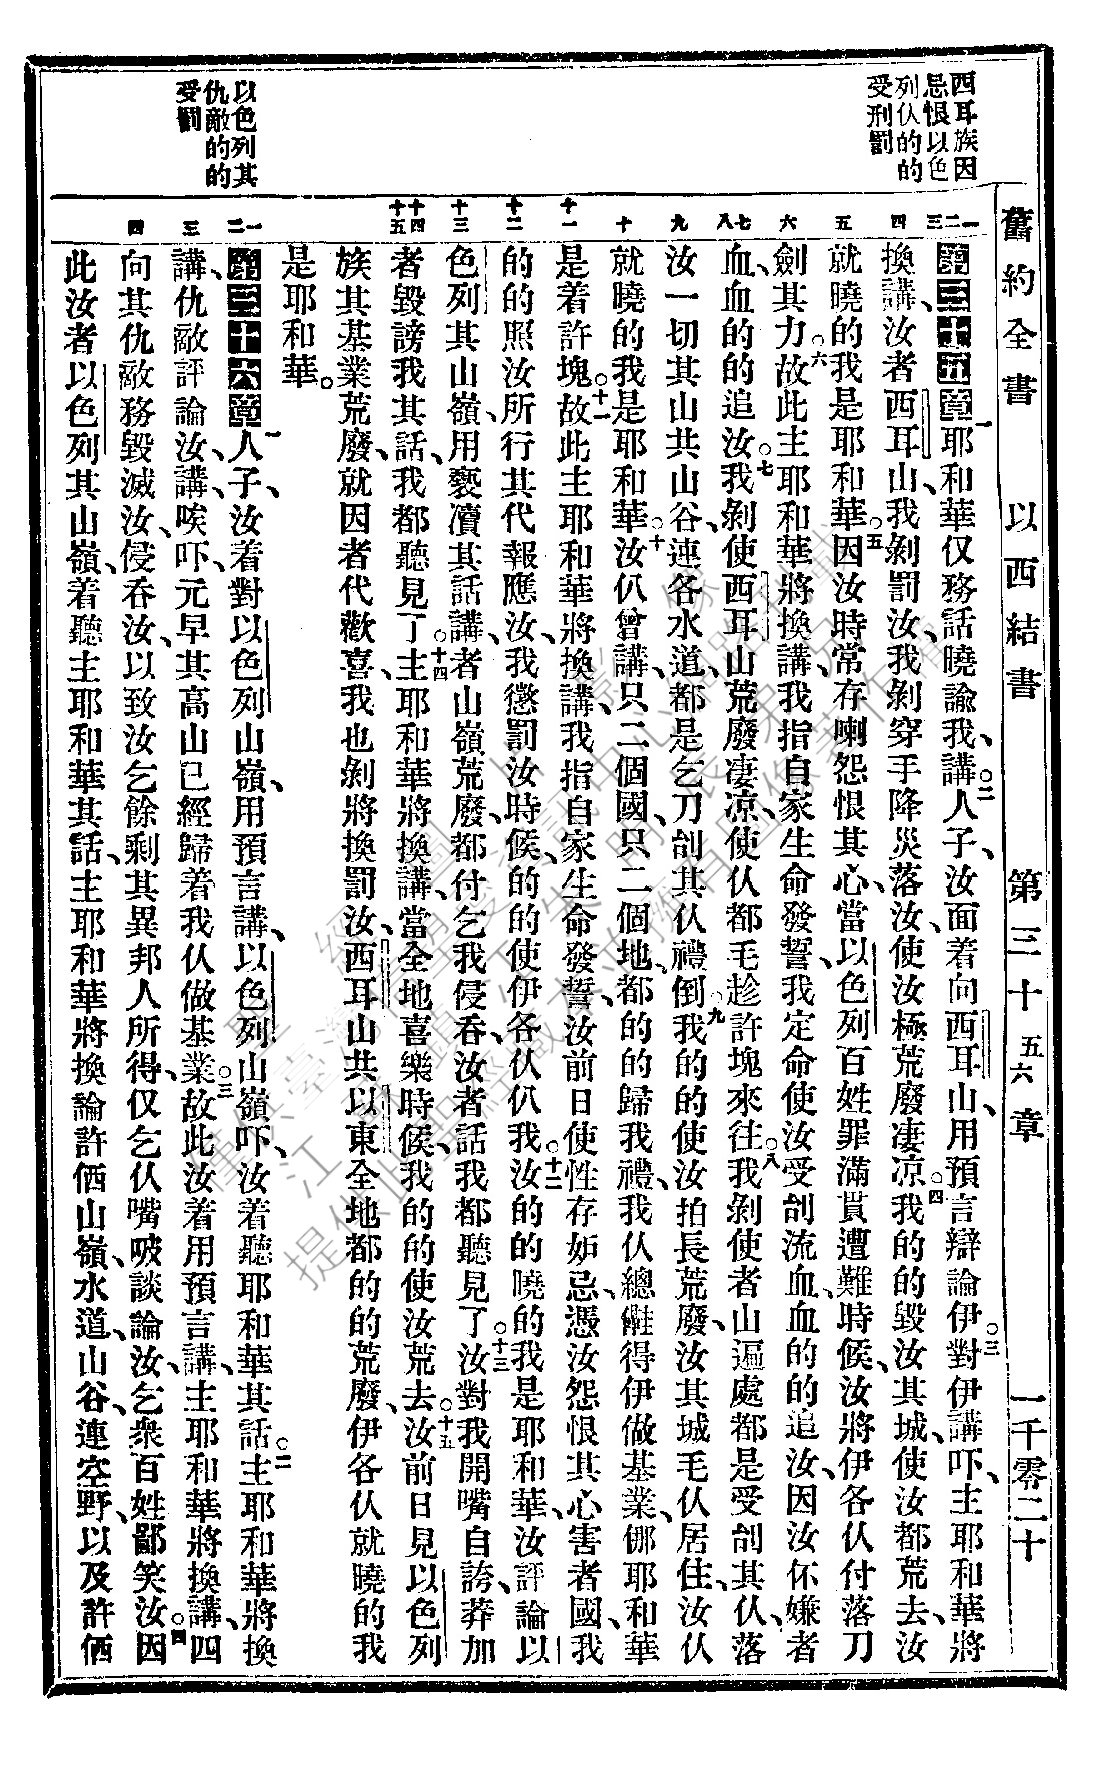 舊約全書　以西結書　第三十五六章　一千零二十
西耳族因
忌恨以色
列仈的的
受刑罰
以色列其
仇敵的的
受罰
第三十五章一耶和華仅務話曉諭我、講、○二人子、汝面着向西耳山、用預言辯論伊、○三對伊講吓、主耶和華將
換講、汝者西耳山、我剝罰汝、我剝穿手降災落汝、使汝極荒廢凄凉、○四我的的毀汝其城、使汝都荒去、汝
就曉的我是耶和華。○五因汝時常存喇怨恨其心、當以色列百姓罪滿貫遭難時候、汝將伊各仈付落刀
劍其力。○六故此主耶和華將換講、我指自家生命發誓、我定命使汝受刣流血、血的的追汝、因汝伓嫌者
血、血的的追汝。○七我剝使西耳山荒廢凄凉、使仈都毛趁許塊來往。○八我剝使者山遍處都是受刣其仈、落
汝一切其山共山谷、連各水道、都是乞刀刣其仈禮倒。○九我的的使汝拍長荒廢、汝其城毛仈居住、汝仈
就曉的我是耶和華。○十汝仈曾講、只二個國、只二個地、都的的歸我禮、我仈總䧥得伊做基業、㑚耶和華
是着許塊。○十一故此主耶和華將換講、我指自家生命發誓、汝前日使性存妬忌、憑汝怨恨其心害者國、我
的的照汝所行其代報應汝、我懲罰汝時候、的的使伊各仈仈我。○十二汝的的曉的我是耶和華、汝評論以
色列其山嶺、用褻瀆其話講、者山嶺荒廢、都付乞我侵吞、汝者話我都聽見了。○十三汝對我開嘴自誇、莽加
者毀謗我其話、我都聽見了。○十四主耶和華將換講、當全地喜樂時候、我的的使汝荒去。○十五汝前日見以色列
族其基業荒廢、就因者代歡喜、我也剝將換罰汝、西耳山共以東全地都的的荒廢、伊各仈就曉的我
是耶和華。
第三十六章一人子、汝着對以色列山嶺、用預言講、以色列山嶺吓、汝着聽耶和華其話。○二主耶和華將換
講、仇敵評論汝、講、唉吓、元早其高山已經歸着我仈做基業。○三故此汝着用預言講、主耶和華將換講、四
向其仇敵務毀滅汝、侵吞汝、以致汝乞餘剩其異邦人所得、仅乞仈嘴唆談論汝、乞衆百姓鄙笑汝。○四因
此汝者以色列其山嶺、着聽主耶和華其話、主耶和華將換論許俩山嶺、水道、山谷、連空野、以及許俩